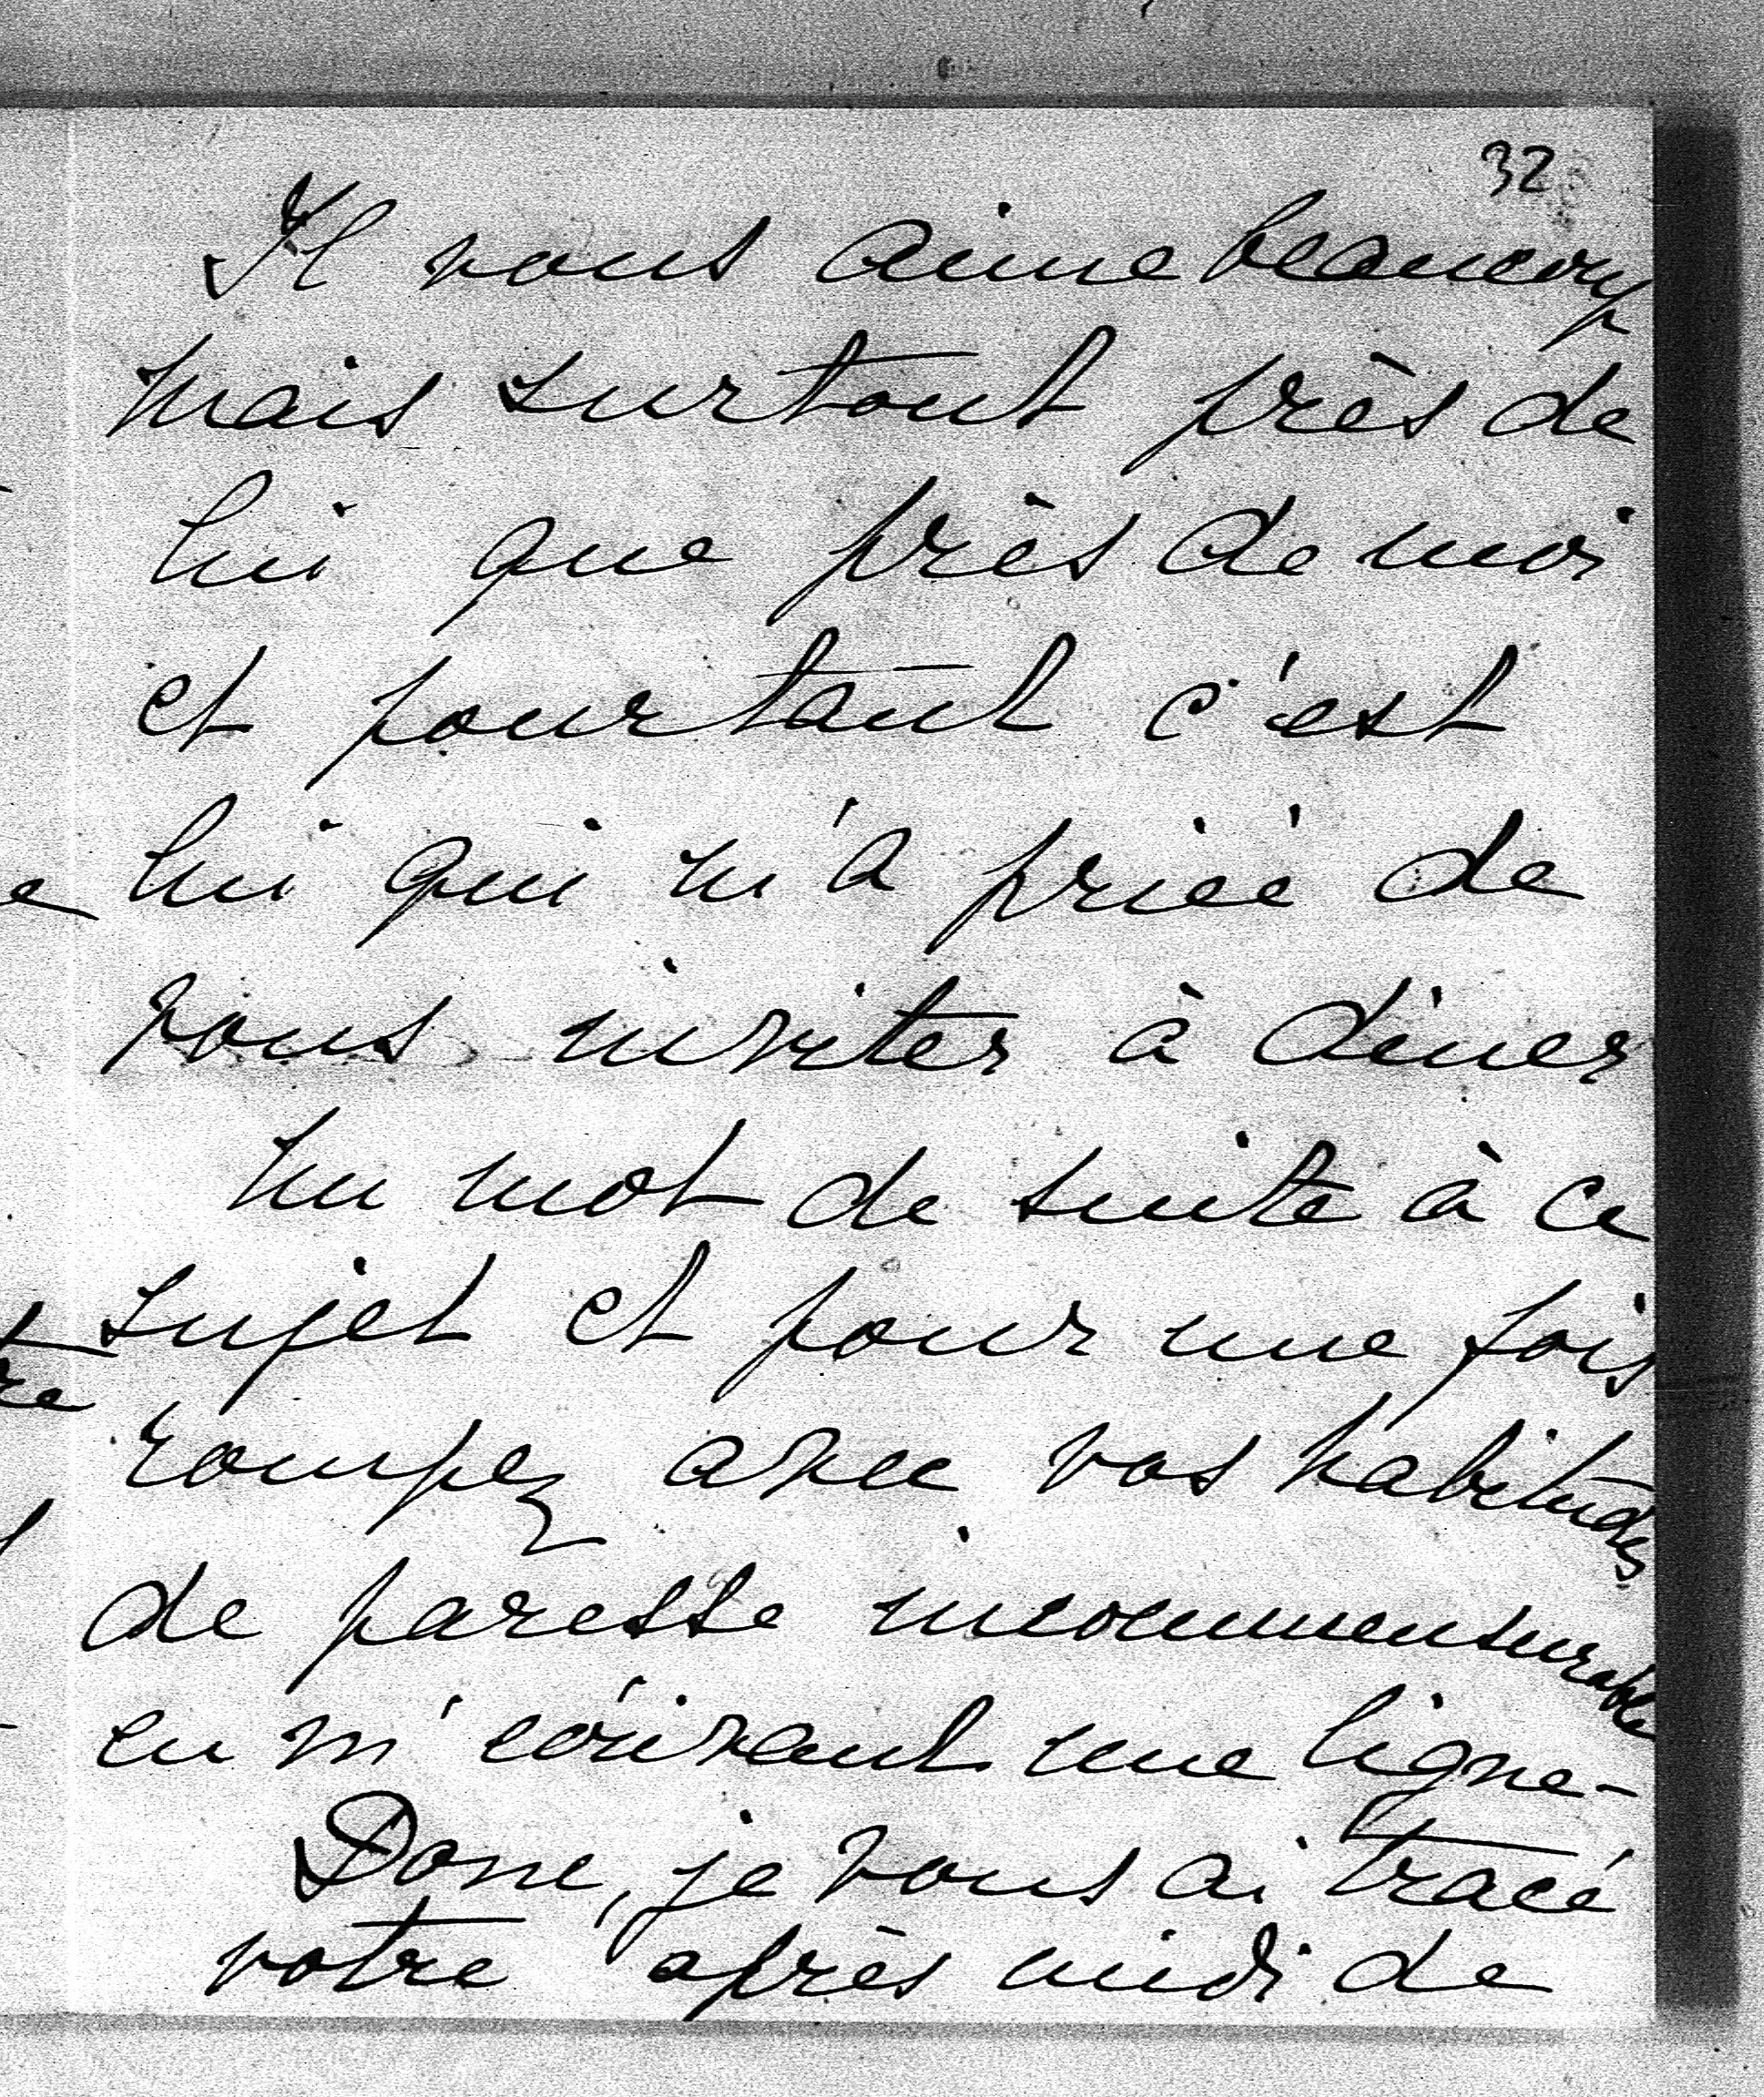 32
Il vous aime beaucoup
mais surtout près de
lui que près de moi
et pourtant c'est
lui qui m'a priée de
vous inviter à diner
un mot de suite à ce
sujet et pour une fois
rompez avec vos habitudes
de paresse incommensurable
en m'écrivant une ligne-
Donc, je vous ai tracé
votre après midi de